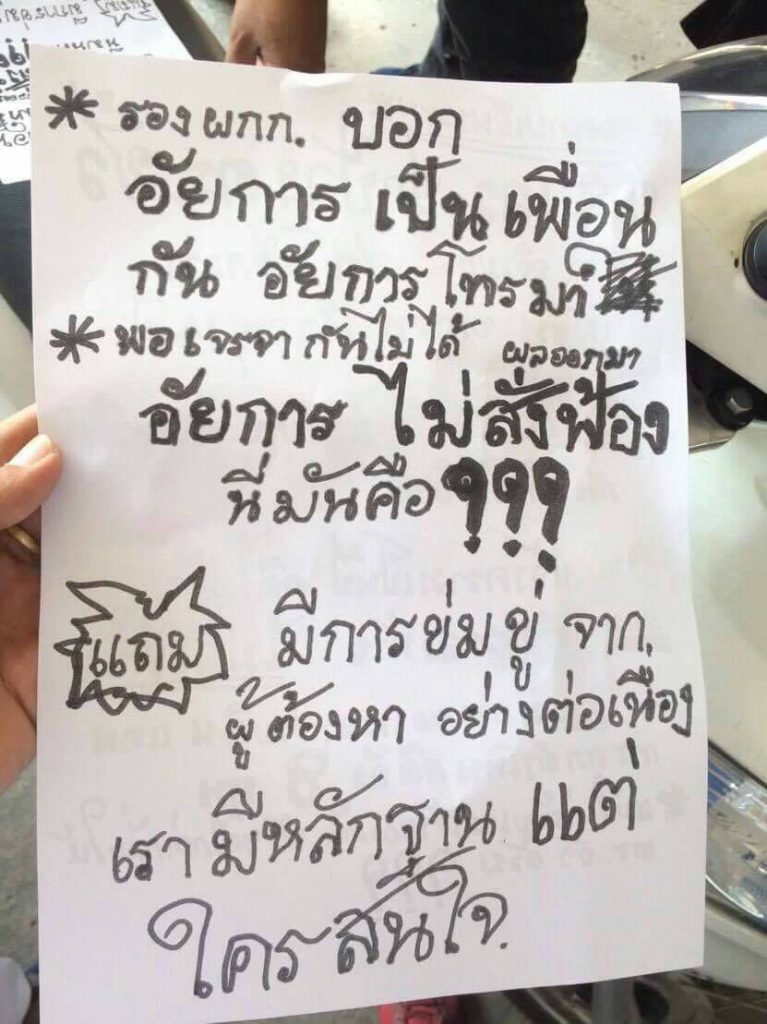 * รอง ผกก. บอก
อัยการ เป็น เพื่อน
กัน อัยการ โทรมา
* พอเจรจากันไม่ได้ ผลออกมา
อัยการ ไม่สั่งฟ้อง
นี่มันคือ ???
แถม มีการข่มขู่ จาก.
ผู้ต้องหา อย่างต่อเนื่อง
เรามีหลักฐาน แต่
ใครสนใจ.